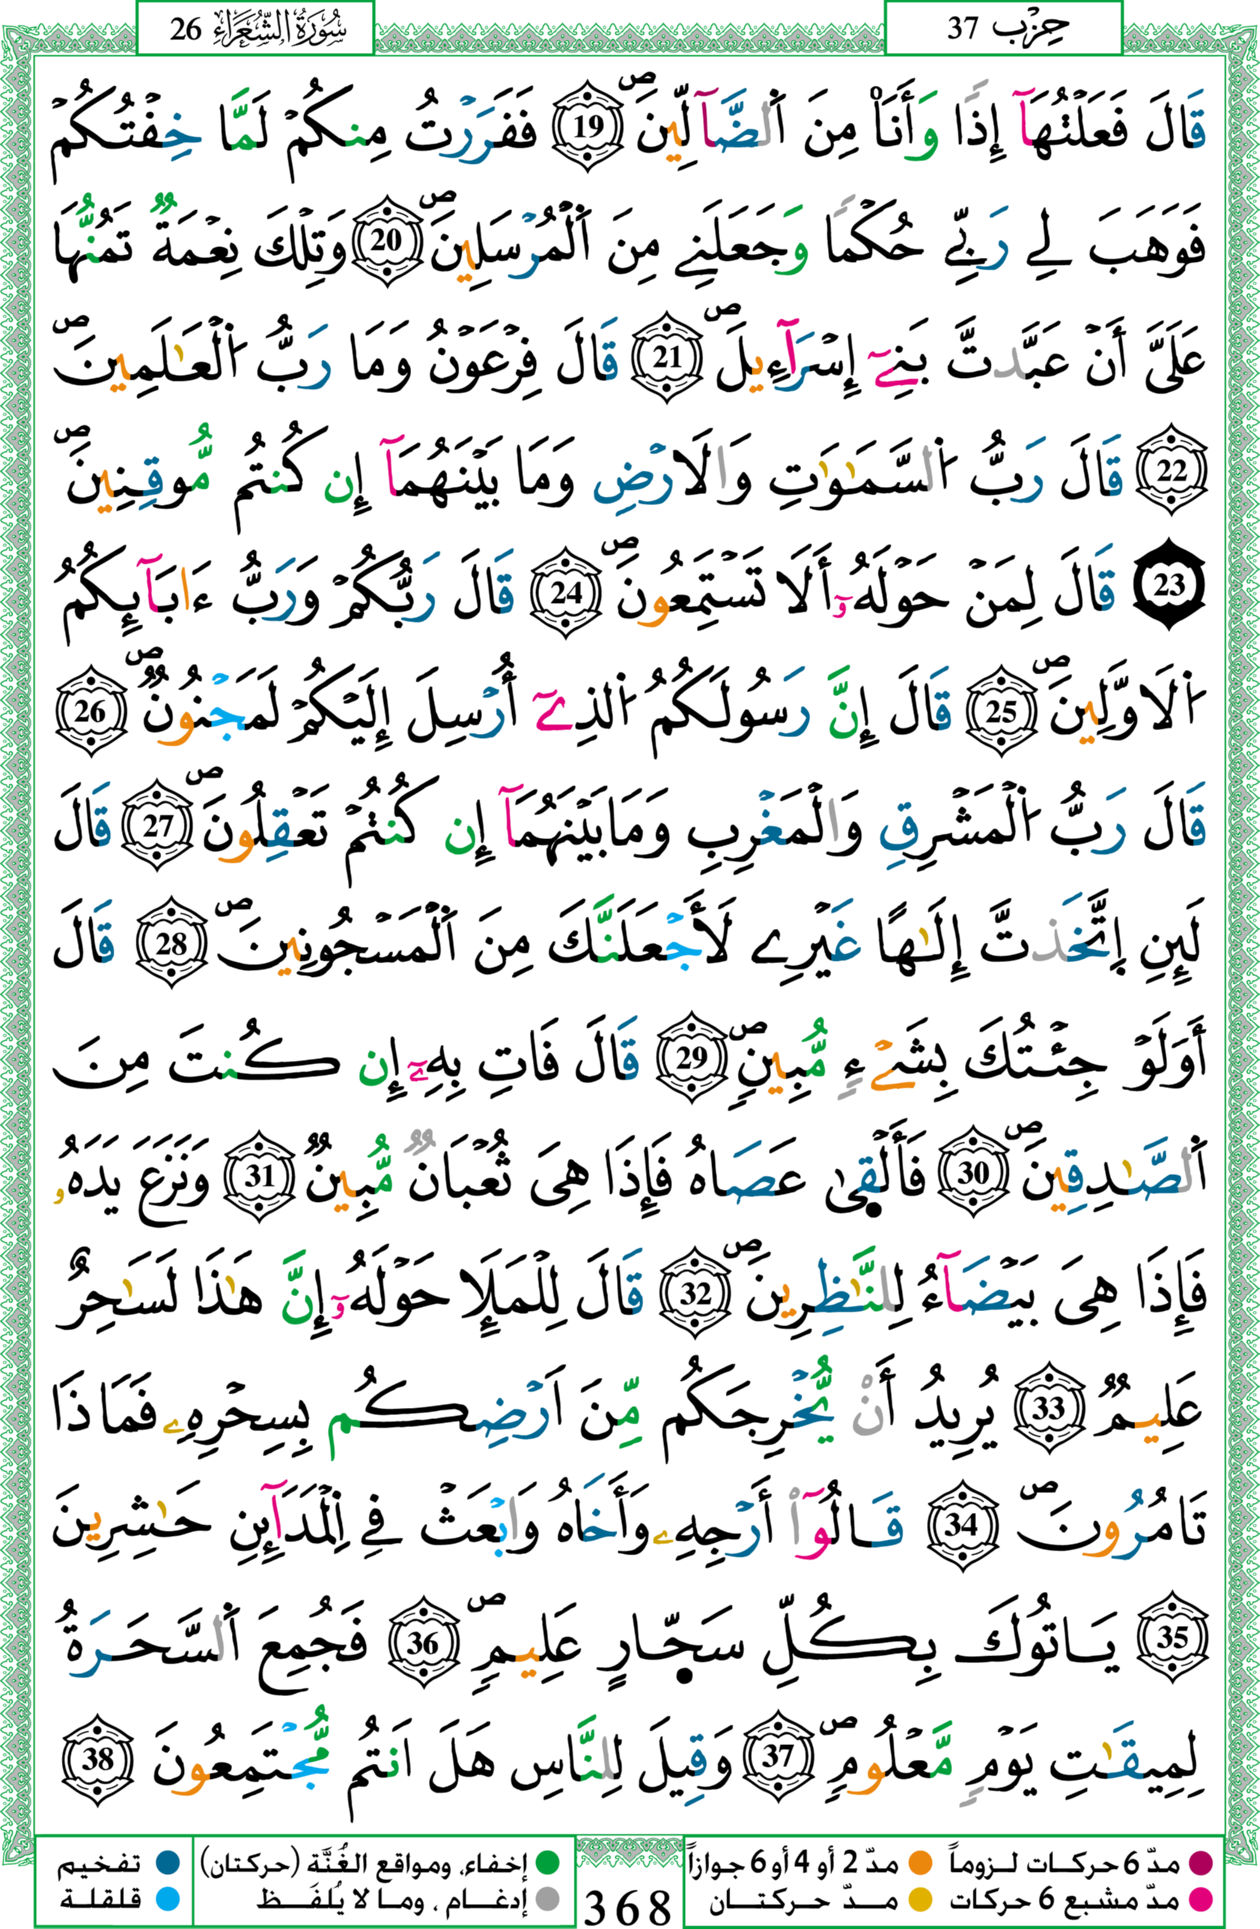 حِزْب 37
سُورَةُ الشُّعَرَاء 26
قَالَ فَعَلْتُهَآ إِذًا وَأَنَا۠ مِنَ اَ۬لضَّآلِّينَۖ 19 فَفَرَرْتُ مِنكُمْ لَمَّا خِفْتُكُمْ
فَوَهَبَ لِے رَبِّے حُكْمًا وَجَعَلَنِے مِنَ اَ۬لْمُرْسَلِينَۖ 20 وَتِلْكَ نِعْمَةٌ تَمُنُّهَا
عَلَيَّ أَنْ عَبَّدتَّ بَنِےٓ إِسْرَآءِيلَۖ 21 قَالَ فِرْعَوْنُ وَمَا رَبُّ اُ۬لْعَٰلَمِينَۖ
22 قَالَ رَبُّ اُ۬لسَّمَٰوَٰتِ وَالَارْضِ وَمَا بَيْنَهُمَآ إِن كُنتُم مُّوقِنِينَۖ
23 قَالَ لِمَنْ حَوْلَهُۥٓ أَلَا تَسْتَمِعُونَۖ 24 قَالَ رَبُّكُمْ وَرَبُّ ءَابَآئِكُمُ
اُ۬لَاوَّلِينَۖ 25 قَالَ إِنَّ رَسُولَكُمُ اُ۬لذِےٓ أُرْسِلَ إِلَيْكُمْ لَمَجْنُونٞۖ 26
قَالَ رَبُّ اُ۬لْمَشْرِقِ وَالْمَغْرِبِ وَمَا بَيْنَهُمَآ إِن كُنتُمْ تَعْقِلُونَۖ 27 قَالَ
لَئِنِ اِ۪تَّخَذتَّ إِلَٰهًا غَيْرِے لَأَجْعَلَنَّكَ مِنَ اَ۬لْمَسْجُونِينَۖ 28 قَالَ
أَوَلَوْ جِئْتُكَ بِشَےْءٖ مُّبِينٖۖ 29 قَالَ فَاتِ بِهِۦٓ إِن كُنتَ مِنَ
اَ۬لصَّٰدِقِينَۖ 30 فَأَلْقَىٰ عَصَاهُ فَإِذَا هِيَ ثُعْبَانٞ مُّبِينٞ 31 وَنَزَعَ يَدَهُۥ
فَإِذَا هِيَ بَيْضَآءُ لِلنَّٰظِرِينَۖ 32 قَالَ لِلْمَلَإِ حَوْلَهُۥٓ إِنَّ هَٰذَا لَسَٰحِرٌ
عَلِيمٞ 33 يُرِيدُ أَنْ يُّخْرِجَكُم مِّنَ اَرْضِكُم بِسِحْرِهِۦ فَمَاذَا
تَامُرُونَۖ 34 قَالُوٓا۟ أَرْجِهِۦ وَأَخَاهُ وَابْعَثْ فِے اِ۬لْمَدَآئِنِ حَٰشِرِينَ
35 يَاتُوكَ بِكُلِّ سَحّ۪ارٍ عَلِيمٖۖ 36 فَجُمِعَ اَ۬لسَّحَرَةُ
لِمِيقَٰتِ يَوْمٖ مَّعْلُومٖۖ 37 وَقِيلَ لِلنَّاسِ هَلَ اَنتُم مُّجْتَمِعُونَ 38
مدّ 6 حركات لـزوماً مدّ 2 أو 4 أو 6 جوازاً
مدّ مشبع 6 حركات مـدّ حـركـتـان
368
إخفاء، ومواقع الغُنَّة (حركتان) تفخيم
إدغـام ، ومـا لا يُلفَـظ قلقلة